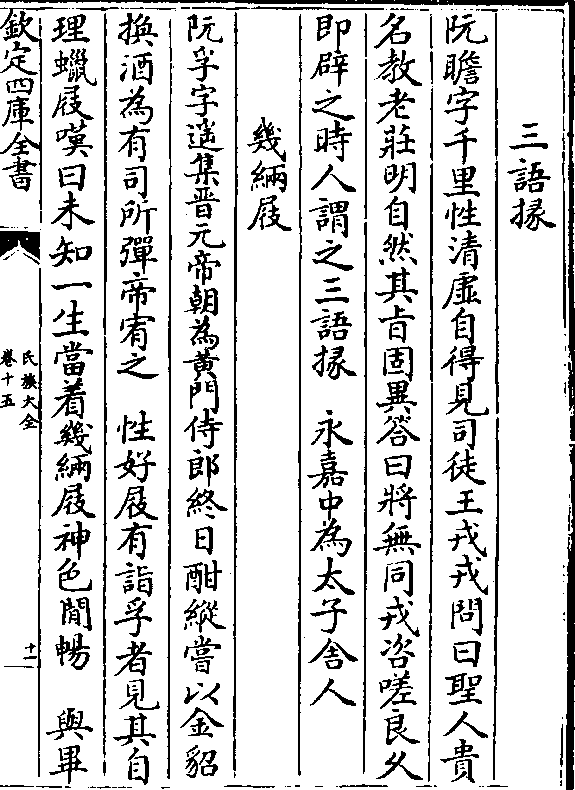 三語掾
阮瞻字千里性清虛自得見司徒王戎戎問曰聖人貴
名教老莊明自然其㫖固異答曰將無同戎咨嗟良久
即辟之時人謂之三語掾　永嘉中為太子舍人
幾緉屐
阮孚字遥集晋元帝朝為黄門侍郎終日酣縱嘗以金貂
換酒為有司所彈帝宥之　性好屐有詣孚者見其自
理蠟屐嘆曰未知一生當着幾緉屐神色閒暢　與畢
欽定四庫全書
氏族大全
卷十五
十一